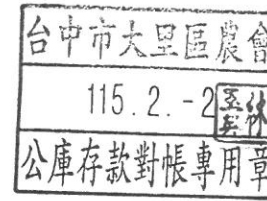 台中市大里區農會
115.2.-2
公庫存款對帳專用章